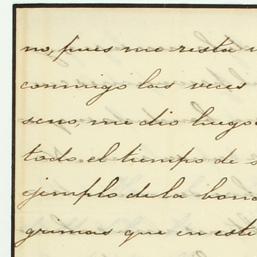 no, pues me resta
conmigo las veces
seno, me dio luego
todo el tiempo de s
ejemplo de la bon
grimas que en este